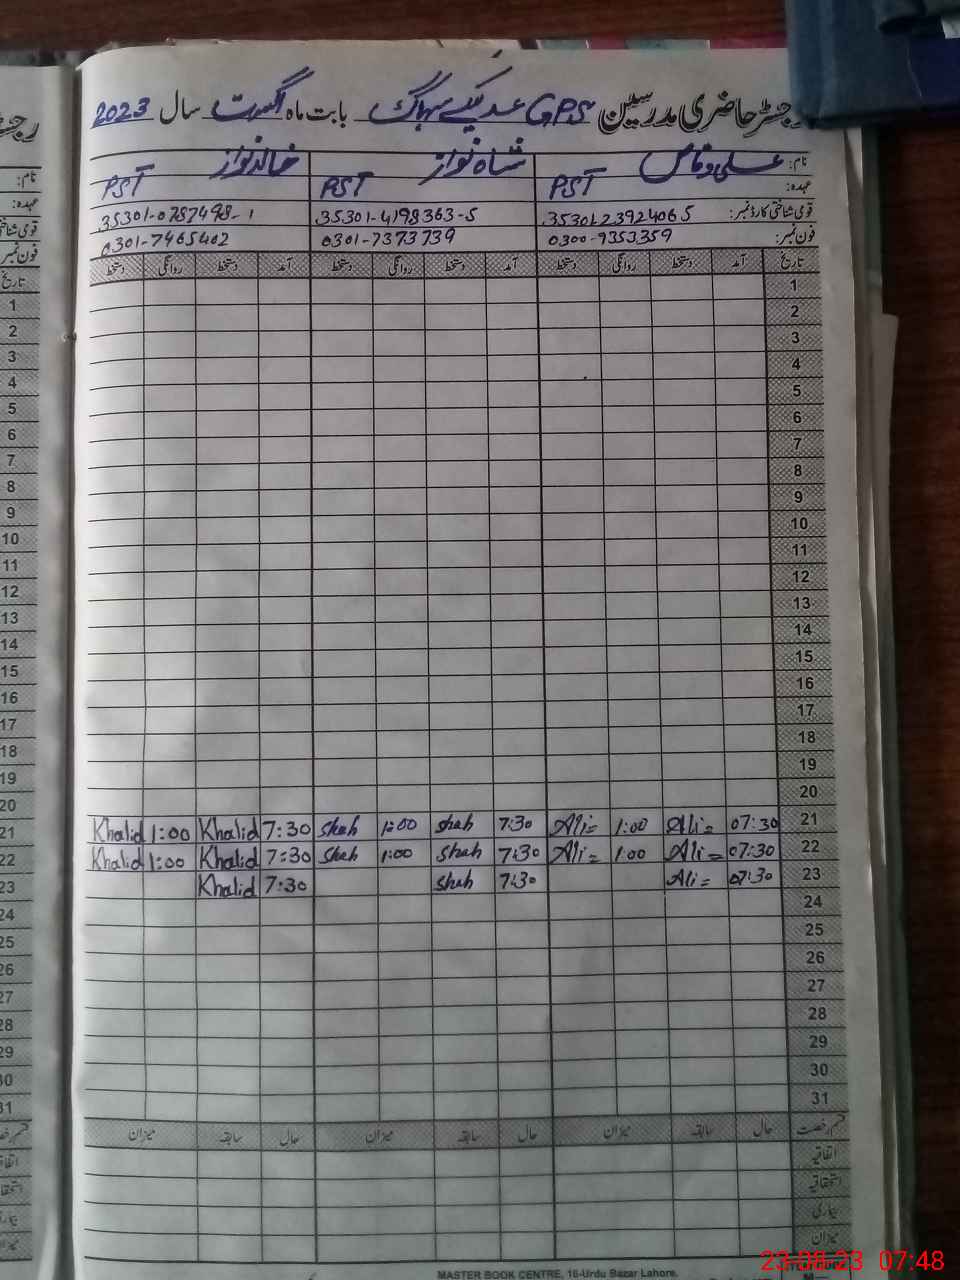 رجسٹر حاضری مدرسین GPS بابت ماہ اگست سال 2023
نام: علی وقاص شاہ نواز خالد نواز
عہدہ: PST PST PST
قومی شناختی کارڈ نمبر: 35301-23924065 35301-4198363-5 35301-0787498-1
فون نمبر: 0300-9353359 0301-7373739 0301-7465402
تاریخ آمد دستخط روانگی دستخط آمد دستخط روانگی دستخط آمد دستخط روانگی دستخط
1
2
3
4
5
6
7
8
9
10
11
12
13
14
15
16
17
18
19
20
Khalid 1:00 Khalid 7:30 Shah 1:00 Shah 7:30 Ali= 1:00 Ali= 07:30 21
Khalid 1:00 Khalid 7:30 Shah 1:00 Shah 7:30 Ali= 1:00 Ali= 07:30 22
Khalid 7:30 Shah 7:30 Ali= 07:30 23
24
25
26
27
28
29
30
31
قسم رخصت حال سابقہ میزان حال سابقہ میزان حال سابقہ میزان
اتفاقیہ
استحقاقیہ
بیماری
میزان
MASTER BOOK CENTRE, 16-Urdu Bazar Lahore.
23-08-23 07:48